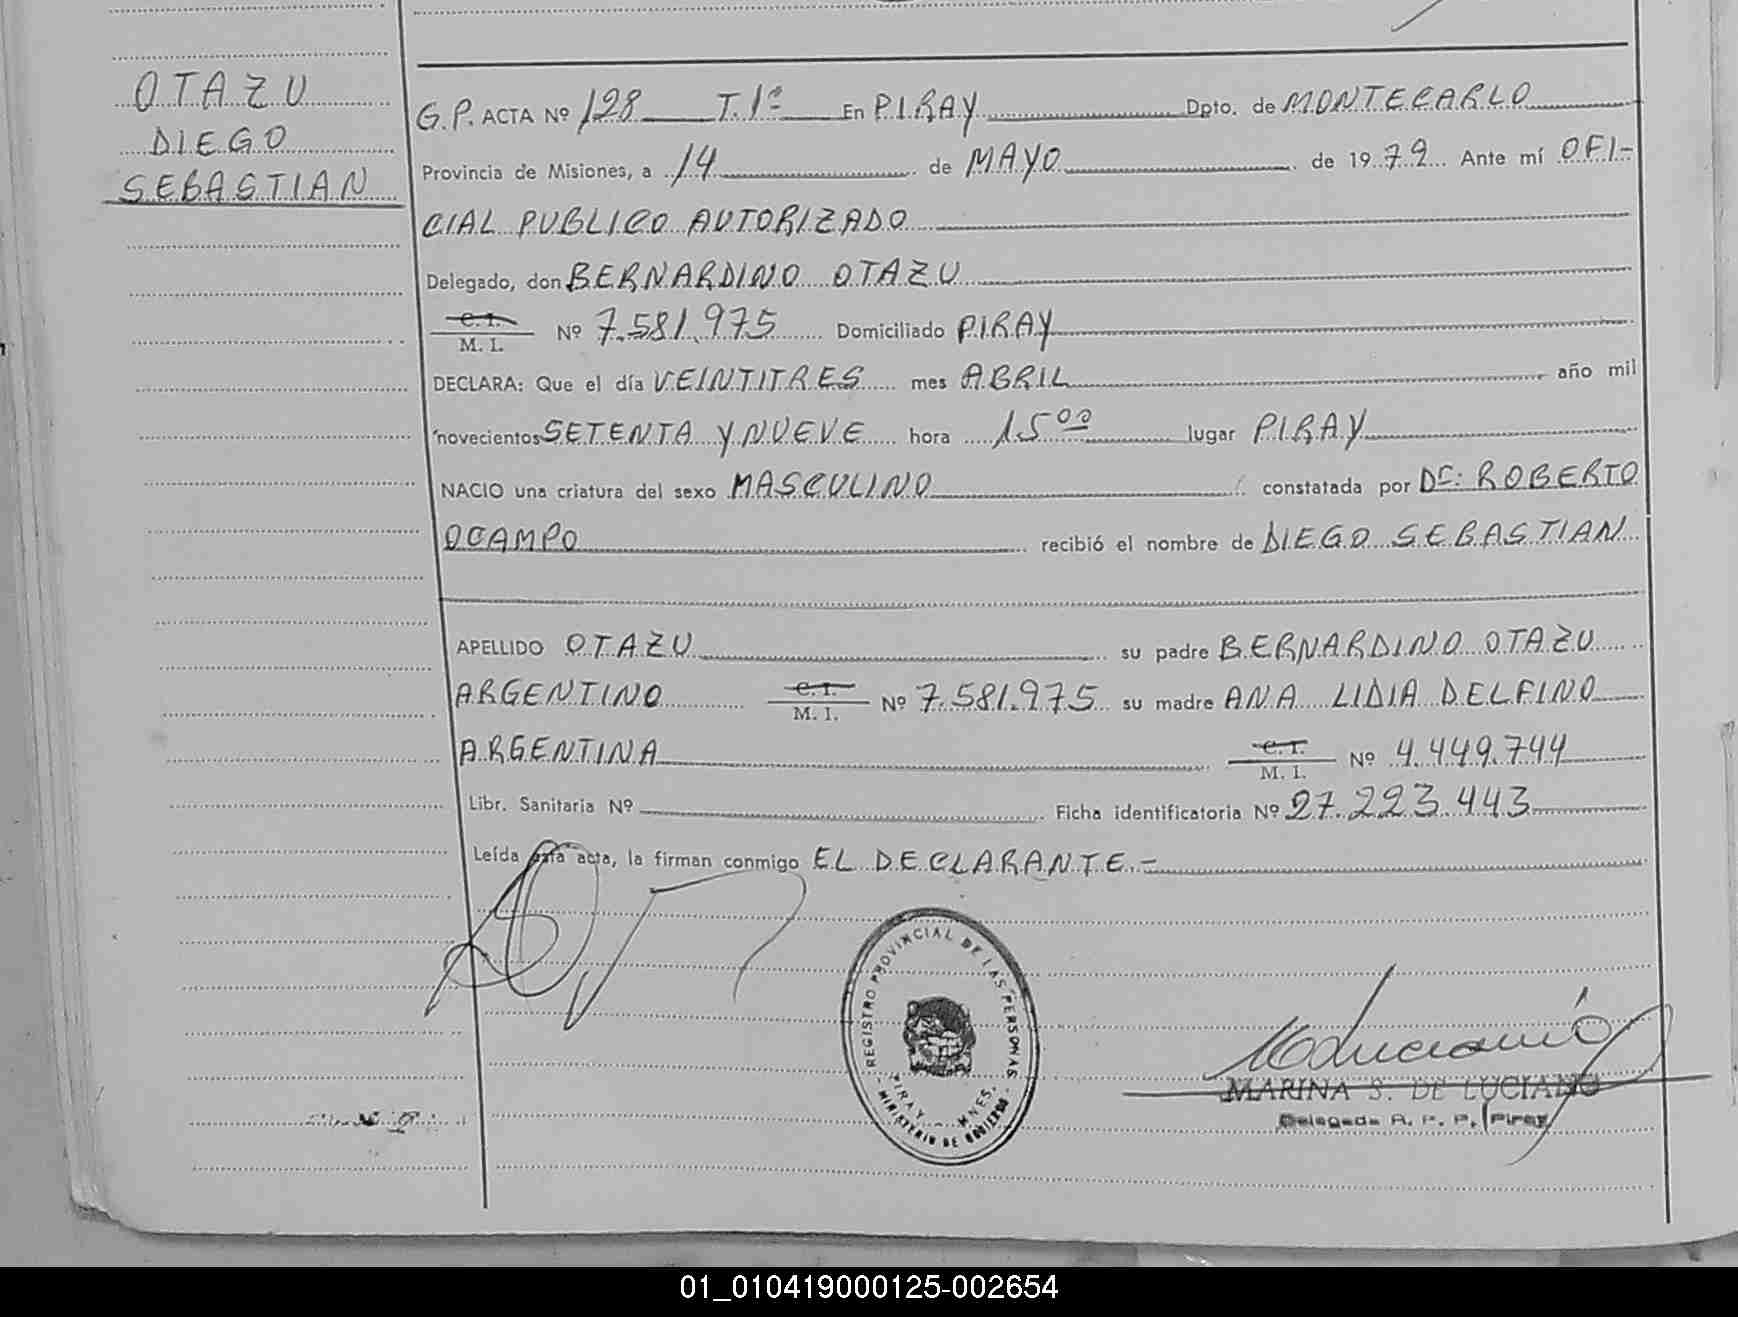 OTAZU
DIEGO
SEBASTIAN
G.P. ACTA Nº 128 T.1º En PIRAY Dpto. de MONTECARLO
Provincia de Misiones, a 14 de MAYO de 1979 Ante mí OFI-
CIAL PUBLICO AUTORIZADO
Delegado, don BERNARDINO OTAZU
C.I. M. I. Nº 7.581.975 Domiciliado PIRAY
DECLARA: Que el día VEINTITRES mes ABRIL año mil
novecientos SETENTA Y NUEVE hora 15⁰⁰ lugar PIRAY
NACIO una criatura del sexo MASCULINO constatada por Dr: ROBERTO
OCAMPO recibió el nombre de DIEGO SEBASTIAN
APELLIDO OTAZU su padre BERNARDINO OTAZU
ARGENTINO C.I. M. I. Nº 7.581.975 su madre ANA LIDIA DELFINO
ARGENTINA C.I. M. I. Nº 4.449.744
Libr. Sanitaria Nº Ficha identificatoria Nº 27.223.443
Leída esta acta, la firman conmigo EL DECLARANTE.-
REGISTRO PROVINCIAL DE LAS PERSONAS
PIRAY - MNES.
MINISTERIO DE GOBIERNO
MARINA S. DE LUCIANO
Delegada R. P. P. Piray
01_010419000125-002654